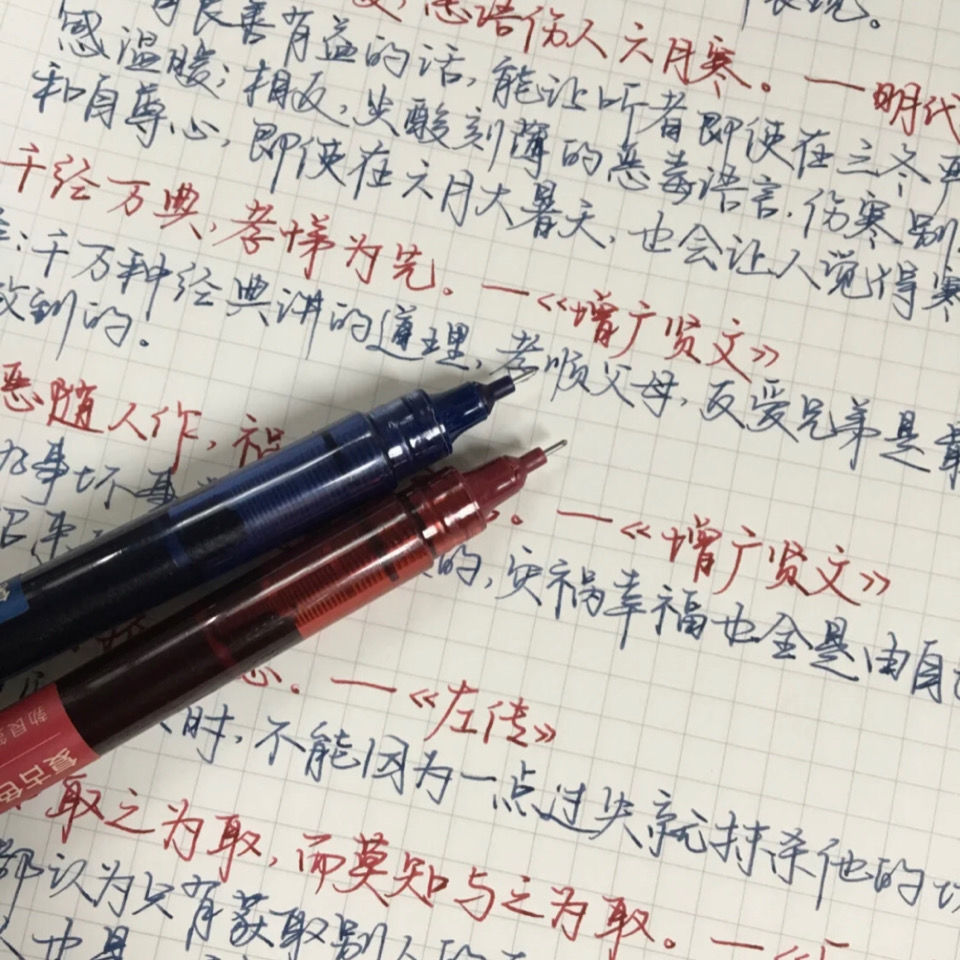 表现。
恶语伤人六月寒。——明代
良善有益的话,能让听者即使在三冬
感温暖;相反,尖酸刻薄的恶毒语言,伤害别
和自尊心,即使在六月大暑天,也会让人觉得寒
千经万典,孝悌为先。——《增广贤文》
:千万种经典讲的道理,孝顺父母,友爱兄弟是
到的。
恶随人作,
——《增广贤文》
事坏事
的,灾祸幸福也全是由自
——《左传》
时,不能因为一点过失就抹杀他的
取之为取,而莫知与之为取。——《
都认为只有获取别人的
也是
复古色